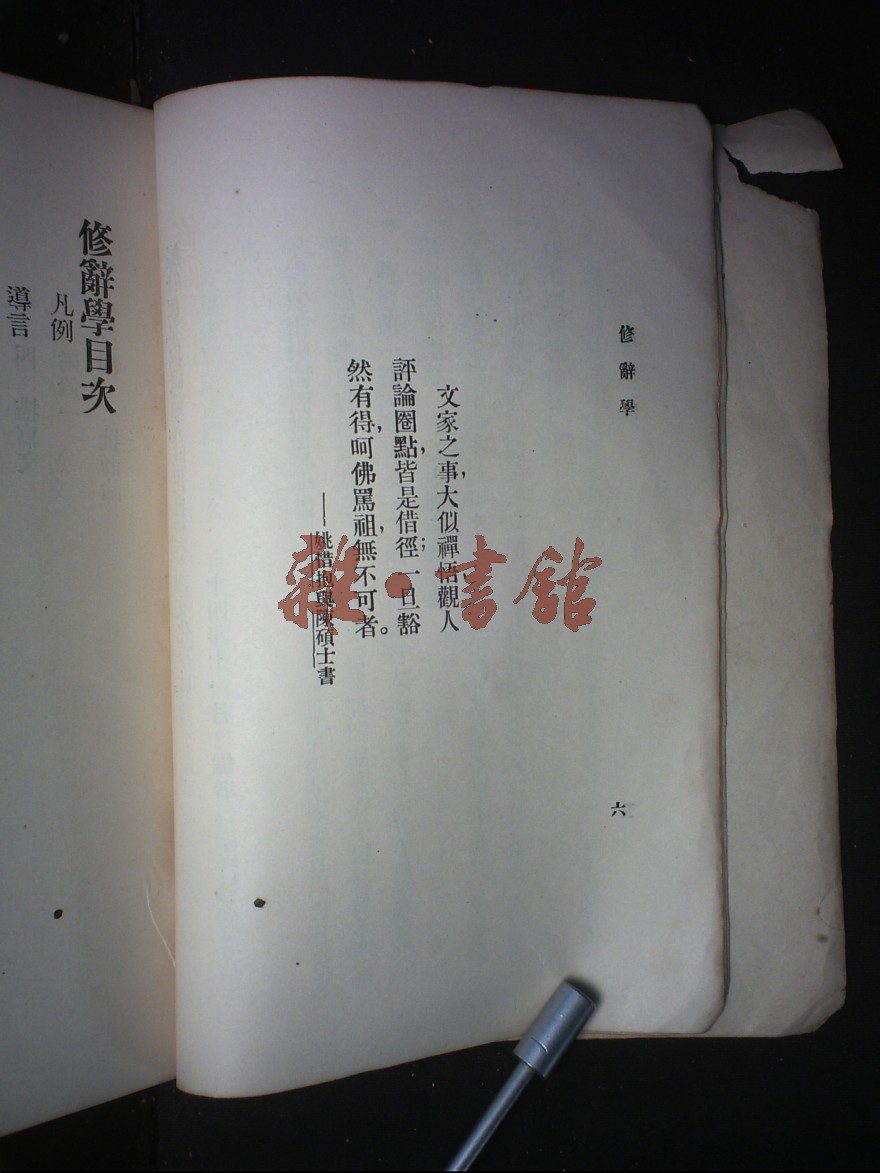 修辭學
文家之事，大似禪悟觀人
評論圈點，皆是借徑；一旦豁
然有得，呵佛罵祖，無不可者。
——姚惜抱與陳碩士書
六
修辭學目次
凡例
導言
雜·書館